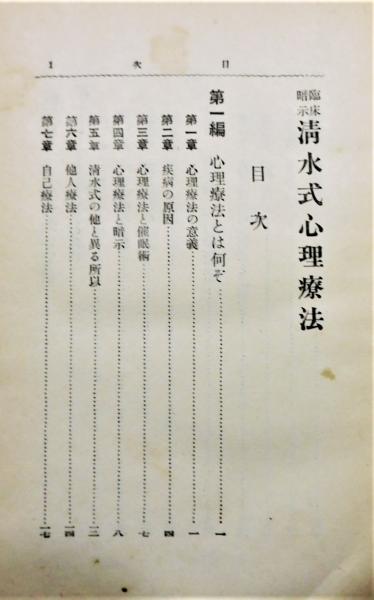 目次 1
臨床暗示 清水式心理療法
目次
第一編 心理療法とは何ぞ…一
第一章 心理療法の意義…一
第二章 疾病の原因…四
第三章 心理療法と催眠術…七
第四章 心理療法と暗示…八
第五章 清水式の他と異る所以…一二
第六章 他人療法…一四
第七章 自己療法…一七